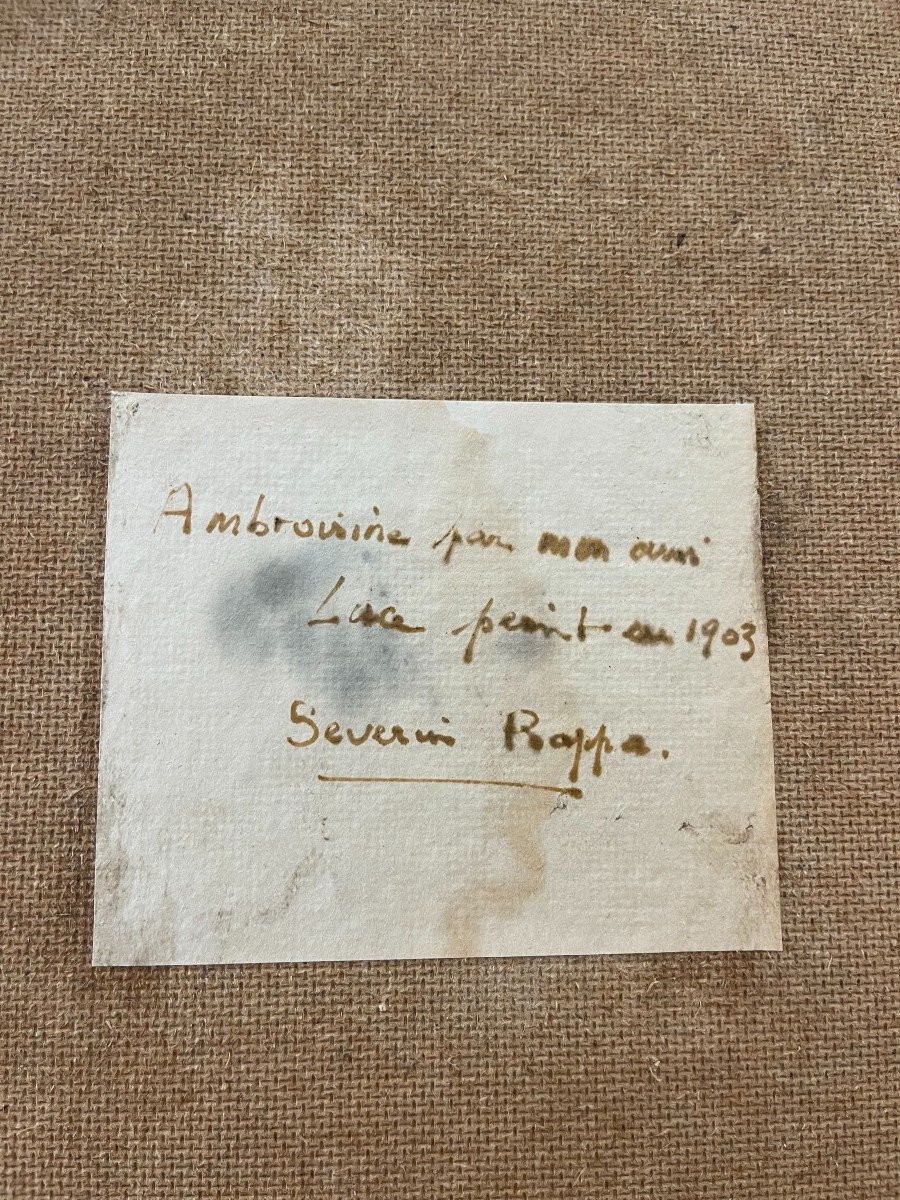 Ambroisine par mon ami
Luce peint en 1903
Severin Rappa.